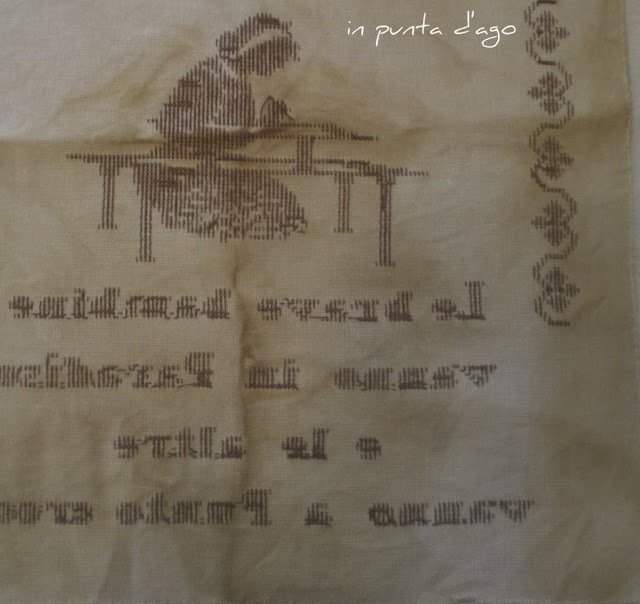 in punta d'ago
le brave bambine
vanno in Paradis
e le altre
vanno a Punto cro